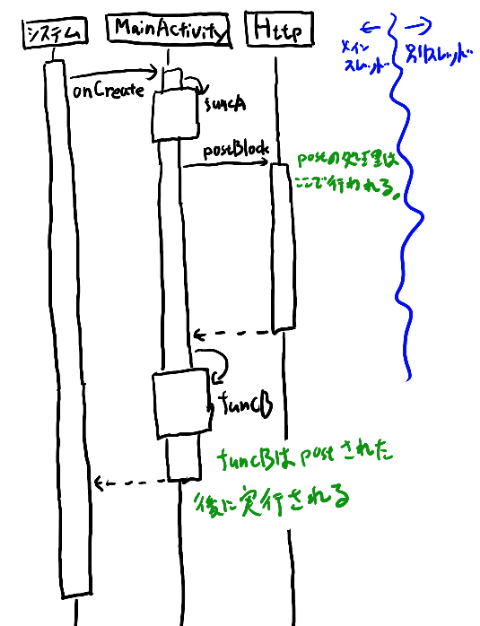 システム
MainActivity
Http
メイン
スレッド
別スレッド
onCreate
funcA
postBlock
postの処理は
ここで行われる。
funcB
funcBはpostされた
後に実行される